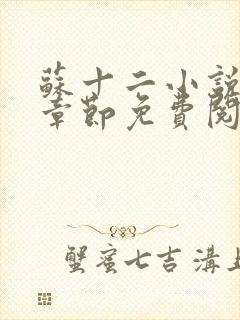 蘇十二小說
章節免費閱
蟹蜜七吉溝上